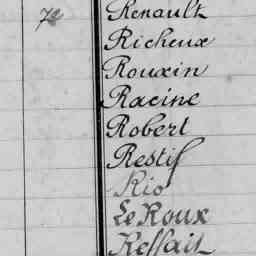 Renault
72 Richeux
Rouxin
Racine
Robert
Restif
Rio
Le Roux